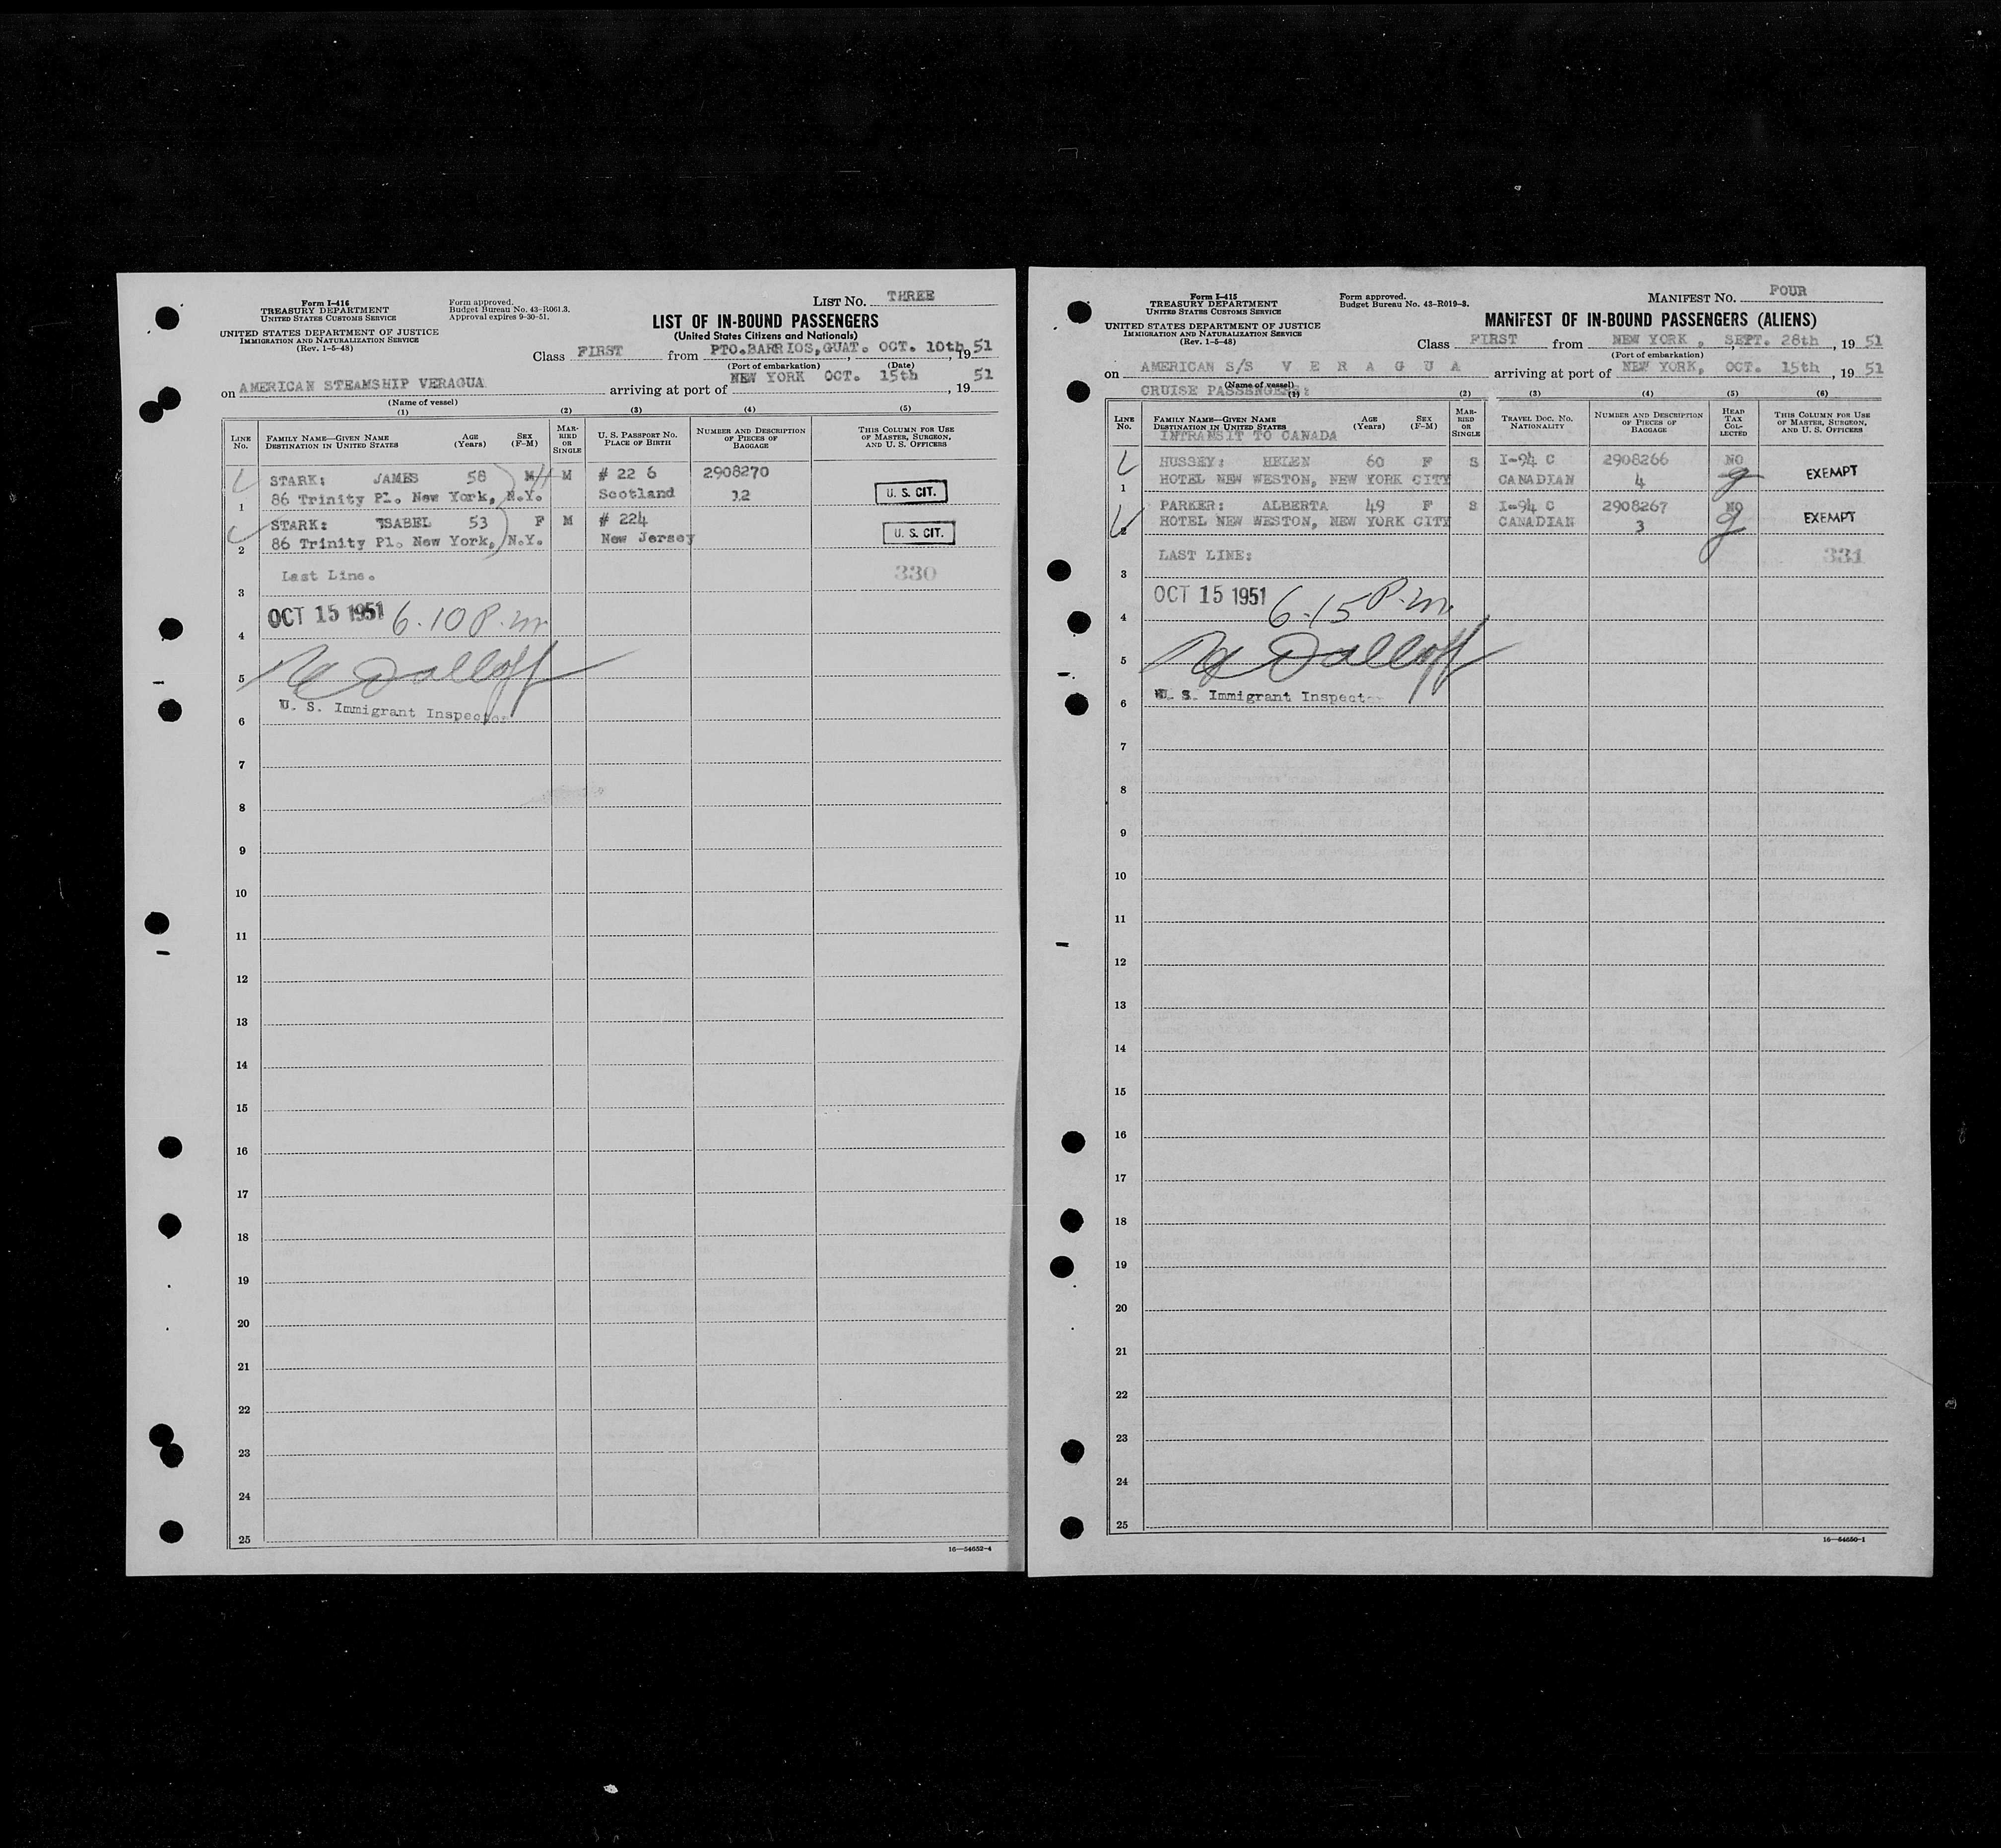 Form I-416
TREASURY DEPARTMENT
UNITED STATES CUSTOMS SERVICE
UNITED STATES DEPARTMENT OF JUSTICE
IMMIGRATION AND NATURALIZATION SERVICE
(Rev. 1-5-48)
Form approved.
Budget Bureau No. 43-R061.3.
Approval expires 9-30-51.
LIST NO. THREE
LIST OF IN-BOUND PASSENGERS
(United States Citizens and Nationals)
Class FIRST from PTO.BARRIOS,GUAT. OCT. 10th, 19 51
(Port of embarkation) (Date)
on AMERICAN STEAMSHIP VERAGUA arriving at port of NEW YORK OCT. 15th, 19 51
(Name of vessel)
(1) (2) (3) (4) (5)
LINE No. FAMILY NAME—GIVEN NAME DESTINATION IN UNITED STATES AGE (Years) SEX (F-M) MARRIED OR SINGLE U. S. PASSPORT NO. PLACE OF BIRTH NUMBER AND DESCRIPTION OF PIECES OF BAGGAGE THIS COLUMN FOR USE OF MASTER, SURGEON, AND U. S. OFFICERS
STARK: JAMES 58 M M # 22 6 2908270
1 86 Trinity Pl. New York, N.Y. Scotland 12 U. S. CIT.
STARK: ISABEL 53 F M # 224
2 86 Trinity Pl. New York, N.Y. New Jersey U. S. CIT.
Last Line. 330
3
OCT 15 1951 6.10 P.m.
4
5
U. S. Immigrant Inspector
6
7
8
9
10
11
12
13
14
15
16
17
18
19
20
21
22
23
24
25
16—54652-4
Form I-415
TREASURY DEPARTMENT
UNITED STATES CUSTOMS SERVICE
UNITED STATES DEPARTMENT OF JUSTICE
IMMIGRATION AND NATURALIZATION SERVICE
(Rev. 1-5-48)
Form approved.
Budget Bureau No. 43-R019-3.
MANIFEST NO. FOUR
MANIFEST OF IN-BOUND PASSENGERS (ALIENS)
Class FIRST from NEW YORK, SEPT. 28th, 19 51
(Port of embarkation)
on AMERICAN S/S V E R A G U A arriving at port of NEW YORK, OCT. 15th, 19 51
(Name of vessel)
CRUISE PASSENGERS:
(1) (2) (3) (4) (5) (6)
LINE No. FAMILY NAME—GIVEN NAME DESTINATION IN UNITED STATES AGE (Years) SEX (F-M) MARRIED OR SINGLE TRAVEL DOC. NO. NATIONALITY NUMBER AND DESCRIPTION OF PIECES OF BAGGAGE HEAD TAX COLLECTED THIS COLUMN FOR USE OF MASTER, SURGEON, AND U. S. OFFICERS
INTRANSIT TO CANADA
HUSSEY: HELEN 60 F S I-94 C 2908266 NO
1 HOTEL NEW WESTON, NEW YORK CITY CANADIAN 4 EXEMPT
PARKER: ALBERTA 49 F S I-94 C 2908267 NO
2 HOTEL NEW WESTON, NEW YORK CITY CANADIAN 3 EXEMPT
LAST LINE: 331
3
OCT 15 1951 6.15 P.m.
4
5
U. S. Immigrant Inspector
6
7
8
9
10
11
12
13
14
15
16
17
18
19
20
21
22
23
24
25
16—54650-1